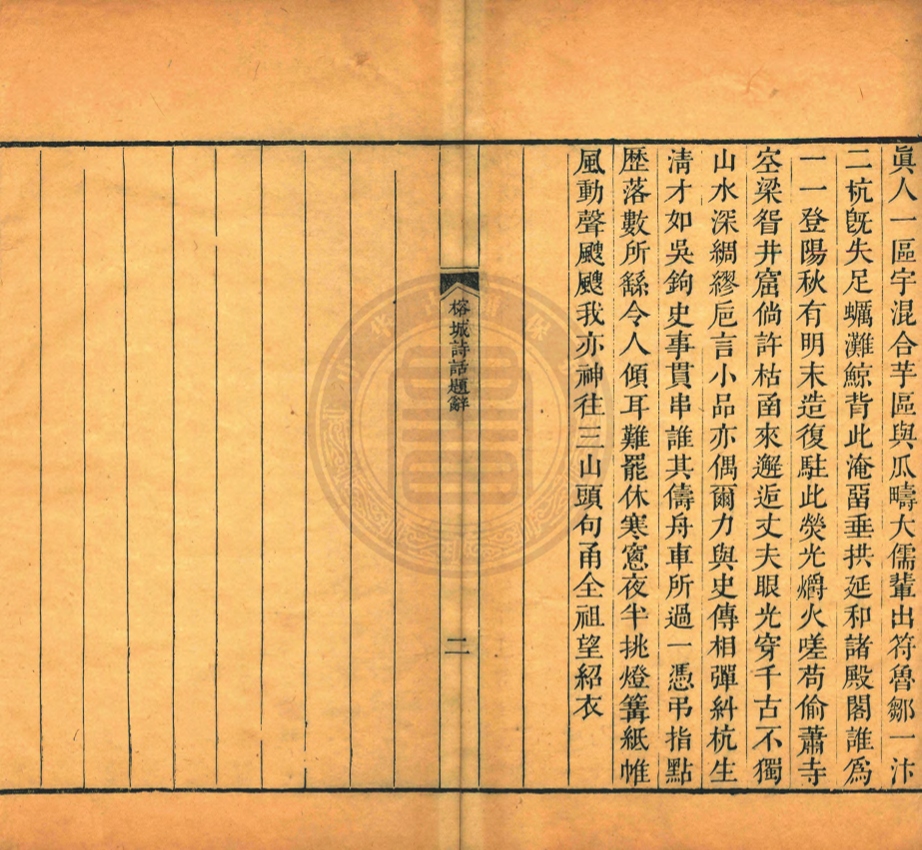 眞人一區宇混合芋區與瓜疇大儒輩出符魯鄒一汴
二杭旣失足蠣灘鯨背此淹畱垂拱延和諸殿閣誰爲
一一登陽秋有明末造復駐此熒光爝火嗟苟偷蕭寺
空梁眢井窟倘許枯菡來邂逅丈夫眼光穿千古不獨
山水深綢繆巵言小品亦偶爾力與史傳相彈糾杭生
淸才如吳鉤史事貫串誰其儔舟車所過一憑弔指點
歷落數所繇令人傾耳難罷休寒窻夜半挑燈篝紙帷
風動聲颼颼我亦神往三山頭句甬全祖望紹衣
榕城詩話題辭
二